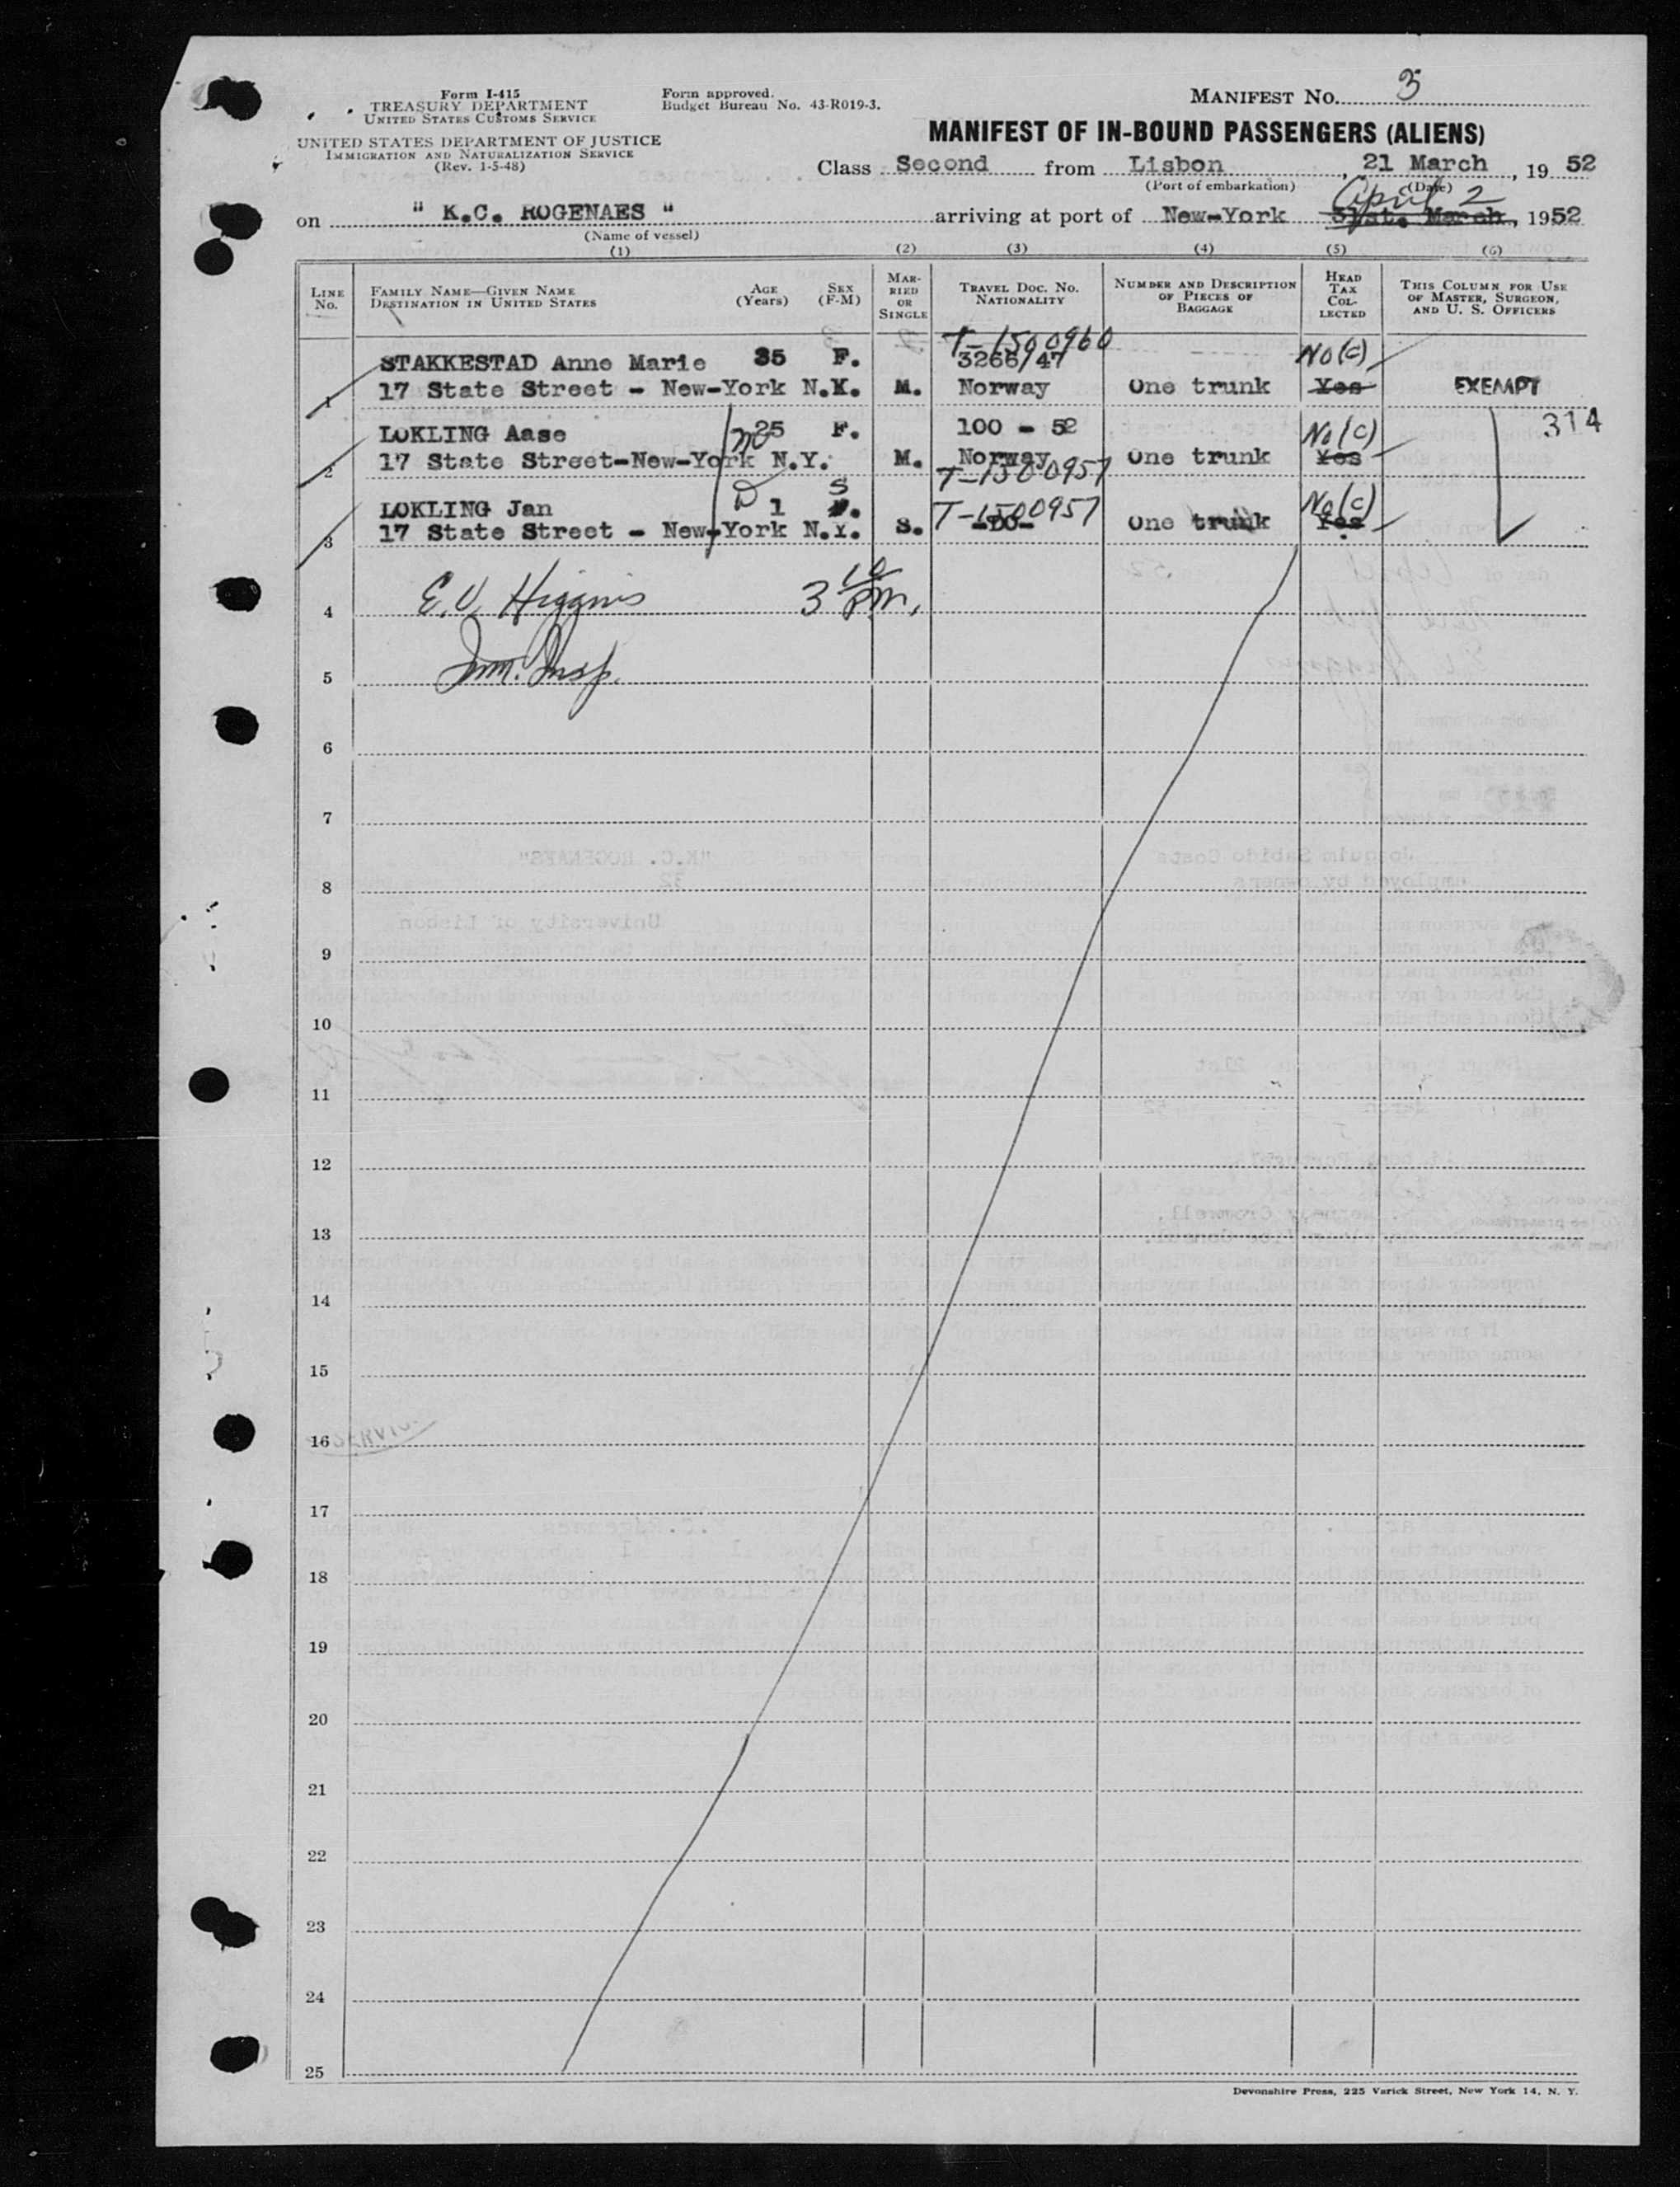 Form I-415
TREASURY DEPARTMENT
UNITED STATES CUSTOMS SERVICE
UNITED STATES DEPARTMENT OF JUSTICE
IMMIGRATION AND NATURALIZATION SERVICE
(Rev. 1-5-48)
Form approved.
Budget Bureau No. 43-R019-3.
MANIFEST No. 3
MANIFEST OF IN-BOUND PASSENGERS (ALIENS)
Class Second from Lisbon, 21 March, 1952
(Port of embarkation) (Date)
on " K.C. ROGENAES " arriving at port of New-York 31st. March, 1952
April 2
(Name of vessel)
(1) (2) (3) (4) (5) (6)
LINE No.
FAMILY NAME—GIVEN NAME
DESTINATION IN UNITED STATES
AGE (Years)
SEX (F-M)
MARRIED OR SINGLE
TRAVEL DOC. NO. NATIONALITY
NUMBER AND DESCRIPTION OF PIECES OF BAGGAGE
HEAD TAX COLLECTED
THIS COLUMN FOR USE OF MASTER, SURGEON, AND U. S. OFFICERS
T-1500960
STAKKESTAD Anne Marie 35 F. 3266/47 No(c)
1 17 State Street - New-York N.K. M. Norway One trunk Yes EXEMPT
LOKLING Aase 25 F. 100 - 52 No(c) 314
2 17 State Street-New-York N.Y. M. Norway One trunk Yes
T-1500957
LOKLING Jan 1 S T-1500957 No(c)
3 17 State Street - New-York N.Y. S. -DO- One trunk Yes
4 E.V. Higgins 3 10 pm.
5 Imm. Insp.
6
7
8
9
10
11
12
13
14
15
16 SERVICE
17
18
19
20
21
22
23
24
25
Devonshire Press, 225 Varick Street, New York 14, N. Y.